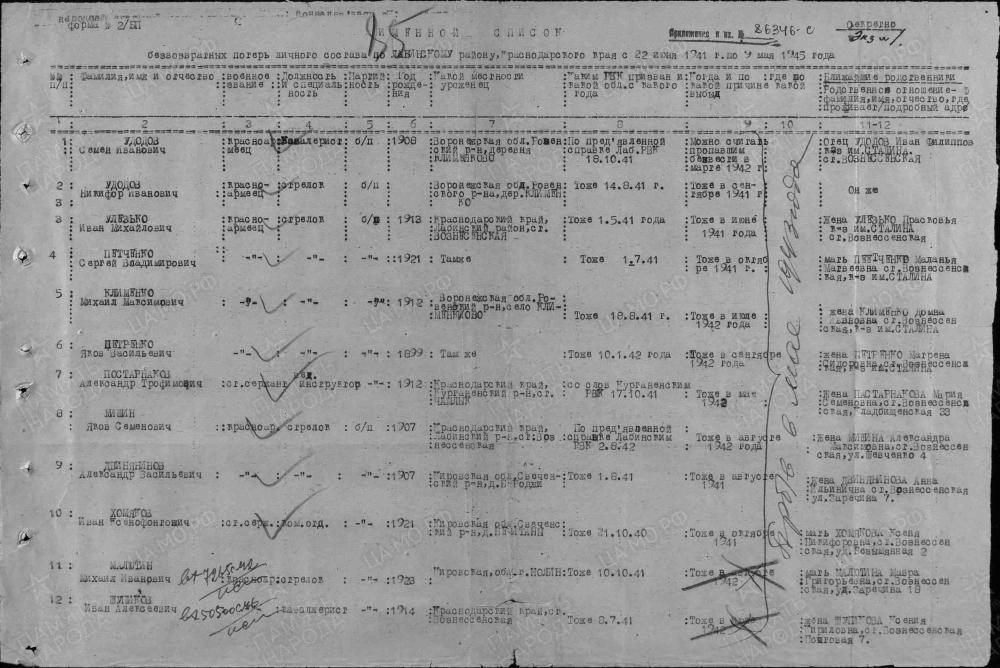 форма № 2/БП
85
Приложение к вх. № 86346-с
Секретно
Экз №1
ИМЕННОЙ СПИСОК
безвозвратных потерь личного состава по ЛАБИНСКОМУ району, Краснодарского края с 22 июня 1941 г. по 9 мая 1945 года
№№ п/п : Фамилия, имя и отчество : военное звание : Должность и специальность : Партийность : Год рождения : Какой местности уроженец : Каким РВК призван и какой обл. с какого года : Когда и по какой причине выбыл : где по какой : Ближайшие родственники
Родственное отношение- фамилия, имя, отчество, где Проживает/подробный адрес
1 : 2 : 3 : 4 : 5 : 6 : 7 : 8 : 9 : 10 : 11-12
1 УДОДОВ Семен Иванович : Красноармеец : Кавалерист : б/п : 1908 : Воронежская обл. Ровенский р-н, деревня КЛИМЕНКОВО : По пред'явленной справке Лаб.РВК 18.10.41 : Можно считать пропавшим безвести в марте 1942 г. : Отец УДОДОВ Иван Филиппов к-з им.СТАЛИНА. ст.ВОЗНЕССЕНСКАЯ
2 УДОДОВ Никифор Иванович : красно-армеец : стрелок : б/п : Воронежская обл. Ровенского р-на, дер.КЛИМЕНКО : Тоже 14.8.41 г. : Тоже в сентябре 1941 г. : Он же
3
3 УЛЕЗЬКО Иван Михайлович : красно-армеец : стрелок : б/п : 1913 : Краснодарский край, Лабинский район, ст. ВОЗНЕСЕНСКАЯ : Тоже 1.5.41 года : Тоже в июне 1941 года : Жена УЛЕЗЬКО Прасковья к-з им.СТАЛИНА ст.Вознессенская
4 ПЕТЧЕНКО Сергей Владимирович : -"- : -"- : -"- : 1921 : Также : Тоже 1.7.41 : Тоже в октябре 1941 г. : мать ПЕТЧЕНКО Маланья Матвеевна ст.Вознессенская, к-з им.СТАЛИНА
5 КЛИМЕНКО Михаил Максимович : -"- : -"- : -"- : 1912 : Воронежская обл. Ровенский р-н, село КЛИМЕНКОВО : Тоже 18.8.41 г. : Тоже в июле 1942 года : жена КЛИМЕНКО Домна Ивановна ст.Вознессенская, к-з им.СТАЛИНА
6 ПЕТРЕНКО Яков Васильевич : -"- : -"- : -"- : 1899 : Там же : Тоже 10.1.42 года : Тоже в сентябре 1942 года : жена ПЕТРЕНКО Матрена Сидоровна ст.Вознессенская, к-з им.СТАЛИНА
7 ПОСТАРНАКОВ Александр Трофимович : ст.сержант : инструктор : -"- : 1912 : Краснодарский край, Курганенский р-н, ст. : со слов Курганенским РВК 17.10.41 : Тоже в мае 1942 : Жена ПАСТАРНАКОВА Мария Семеновна, ст.Вознессенская, Кладбищенская 33
8 МИШИН Яков Семенович : красноар. : стрелок : б/п : 1907 : Краснодарский край, Лабинский р-н, ст.Вознессенская : По пред'явленной справке Лабинским РВК 2.8.42 : Тоже в августе 1942 года : Жена МИШИНА Александра Максимовна, ст.Вознессенская, ул.Шевченко 4
9 ДВИНЯНИНОВ Александр Васильевич : -"- : -"- : -"- : 1907 : Кировская обл. : Тоже 1.8.41 : Тоже в августе 1941 : жена ДВИНЯНИНОВА Анна Ильинична ст.Вознессенская ул.Заречина 7.
10 ХОМЯКОВ Иван Ксенофонтович : ст.серж. : ком.отд. : -"- : 1921 : Кировская обл. : Тоже 21.10.40 : Тоже в октябре 1941 : мать ХОМЯКОВА Ксения Никифоровна, ст.Вознессенская, ул.Безымянная 2
11 МАЛЮТИН Михаил Иванович : красноар : стрелок : -"- : 1923 : Кировская, обл.г.НОЛИН : Тоже 10.10.41 : Тоже в августе 1942 : мать МАЛЮТИНА Мавра Григорьевна, ст.Вознессенская, ул.Заречина 18
12 ШУЛИКОВ Иван Алексеевич : кавалерист : -"- : 1914 : Краснодарский край, ст. Вознессенская : Тоже 8.7.41 : Тоже в 1942 : жена ШУЛИКОВА Ксения Кириловна, ст.Вознессенская Почтовая 7.
ЦАМО.РФ